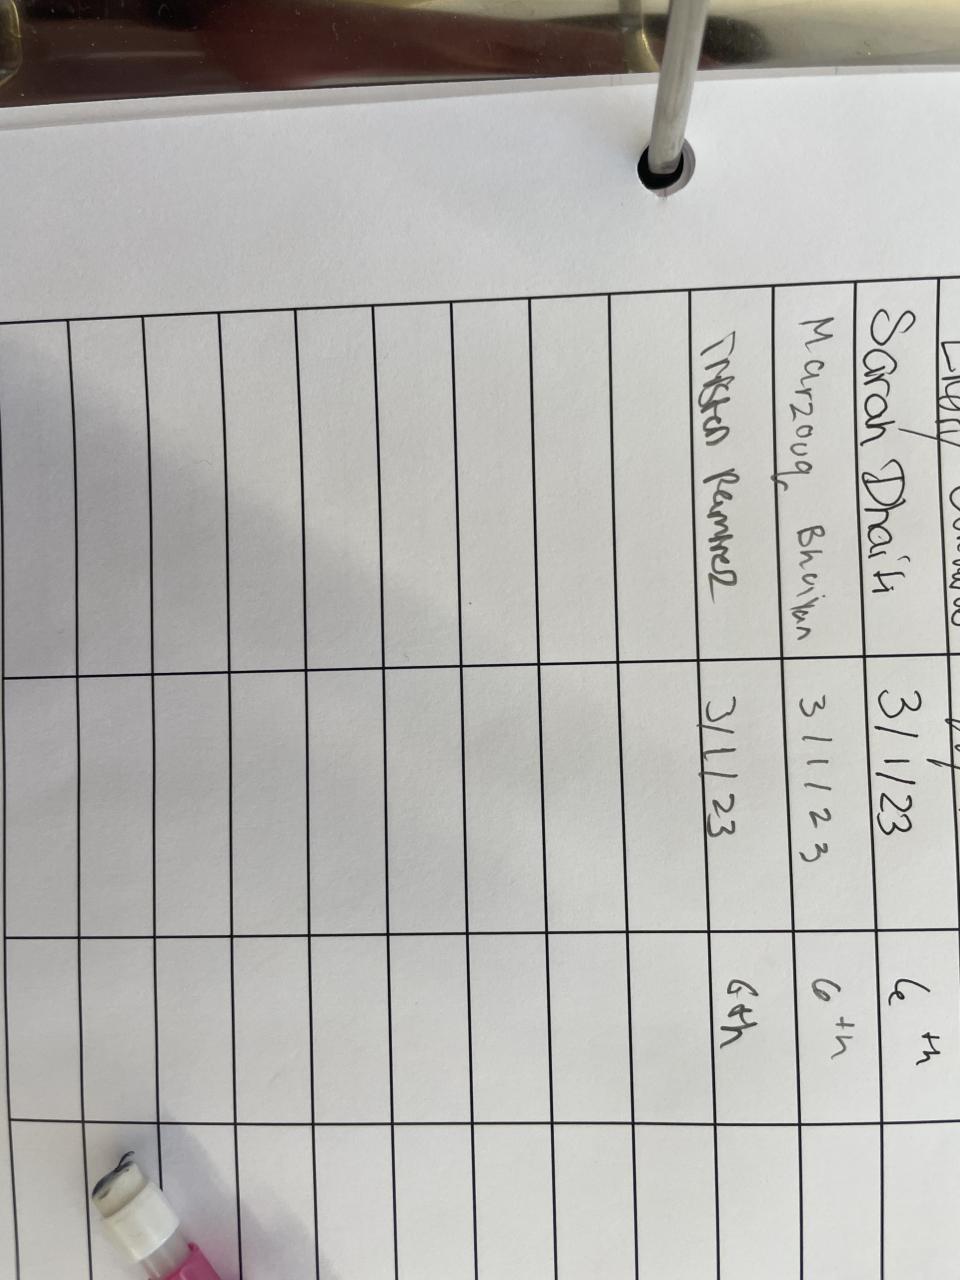 Sarah Dhaiti 3/1/23 6th
Marzouq Bhuiyan 3/1/23 6th
Tristen Ramirez 3/1/23 6th